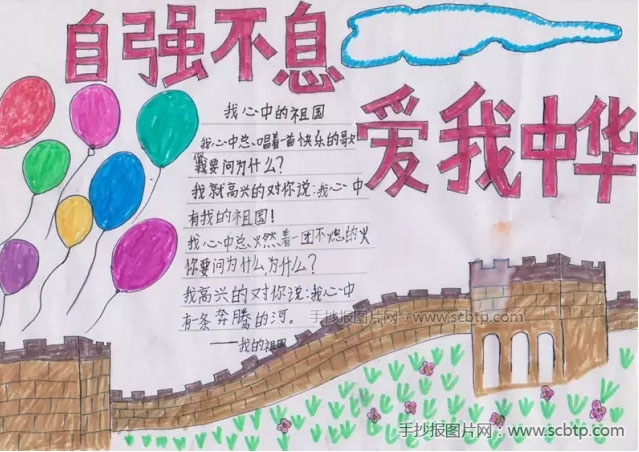 自强不息
爱我中华
我心中的祖国
我心中总唱着一首快乐的歌
你要问为什么?
我就高兴的对你说:我心中
有我的祖国!
我心中总燃着一团不熄的火
你要问为什么,为什么?
我高兴的对你说:我心中
有一条奔腾的河。
——我的祖国
手抄报图片网:www.scbtp.com
手抄报图片网:www.scbtp.com